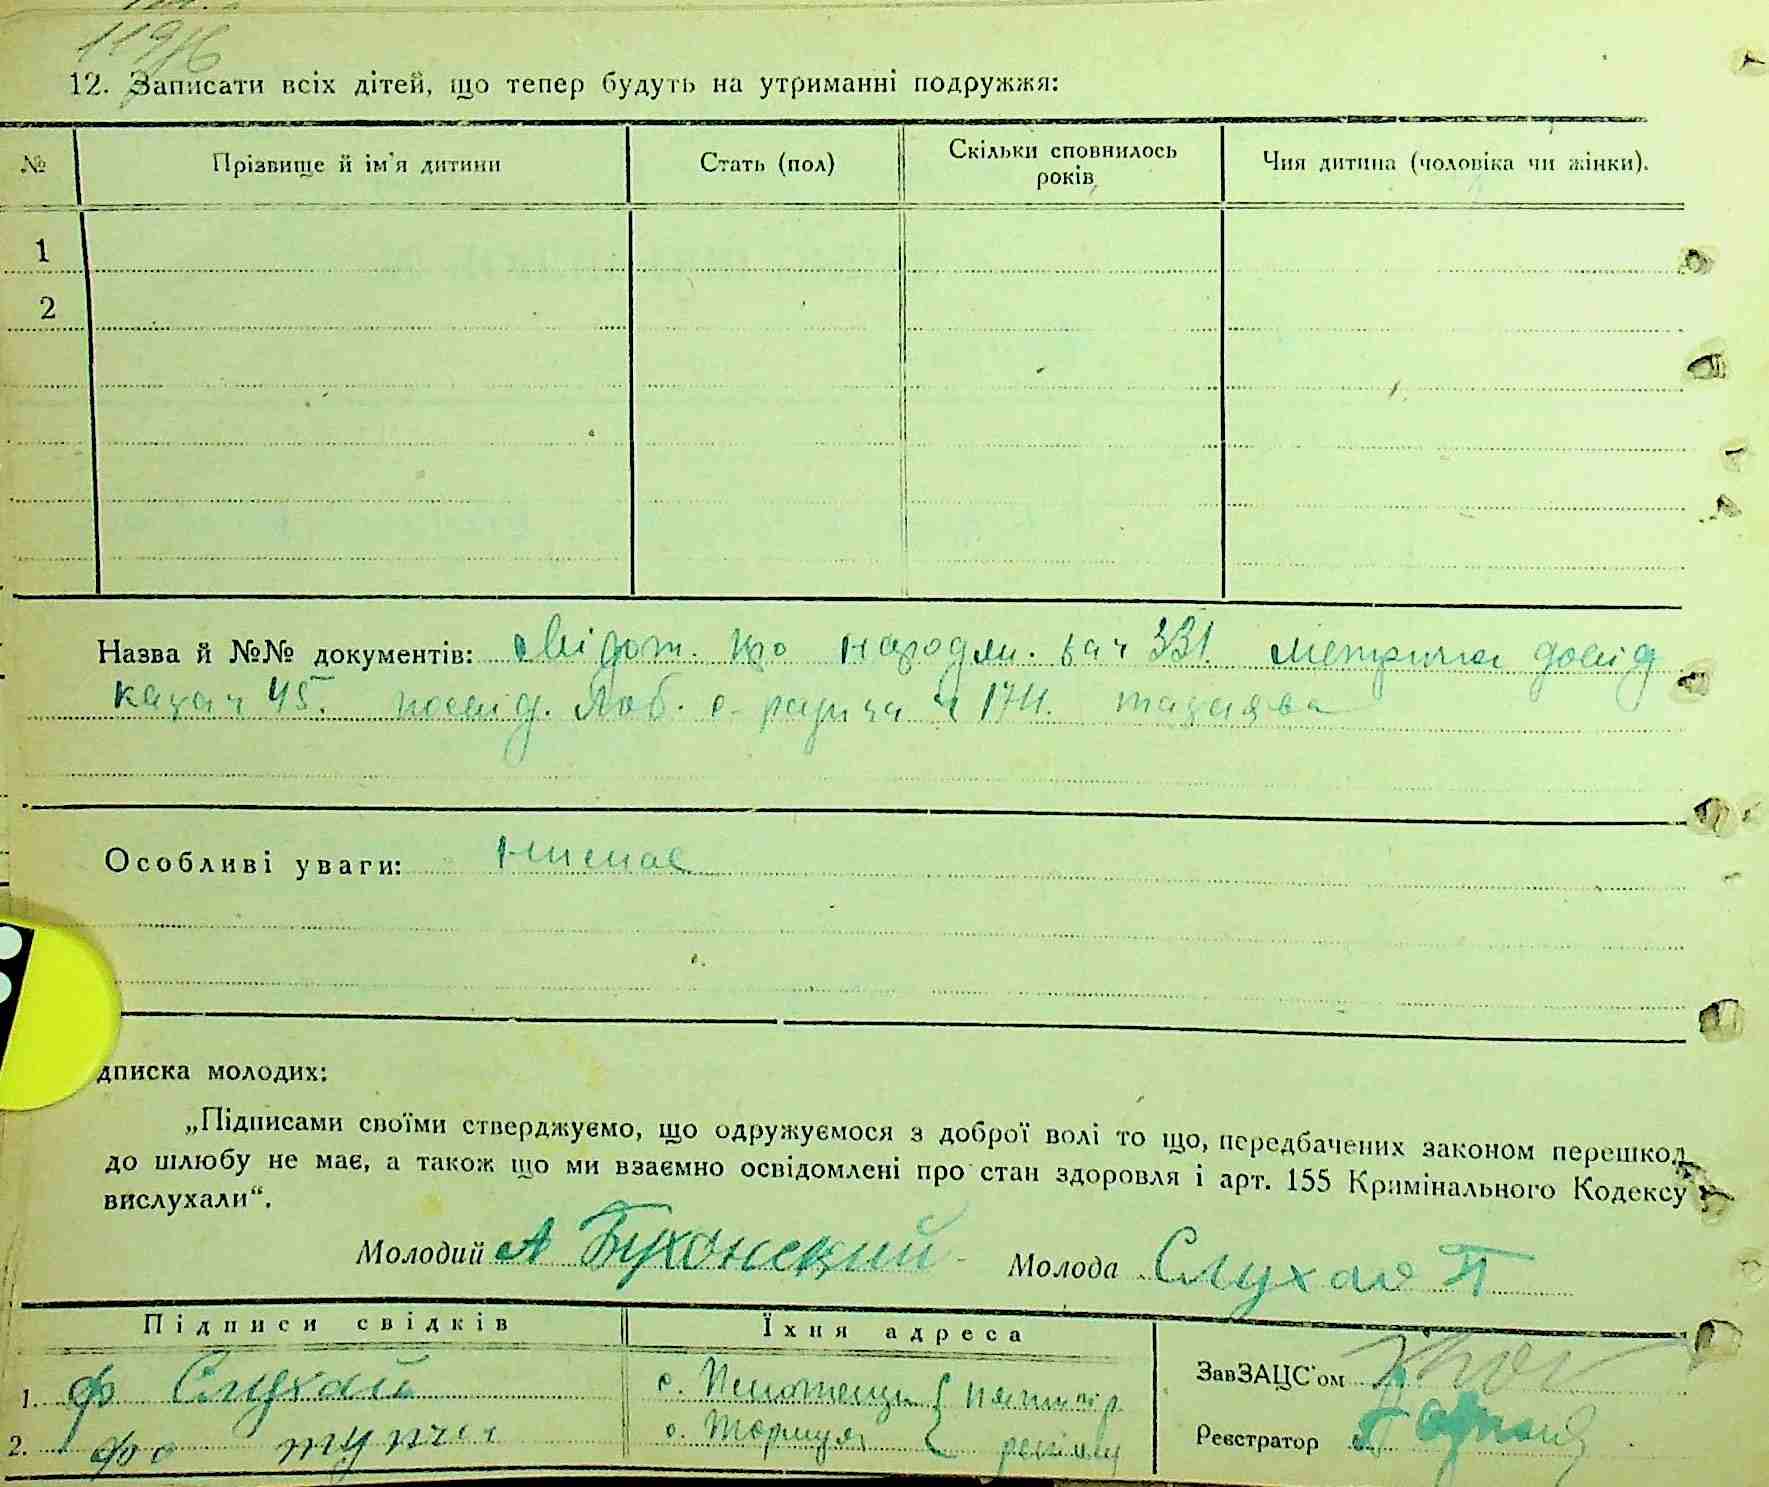 12. Записати всіх дітей, що тепер будуть на утриманні подружжя:
№ Прізвище й ім'я дитини Стать (пол) Скільки сповнилось років Чия дитина (чоловіка чи жінки).
1
2
Назва й №№ документів: про народж. за ч 331. метрична довід
ка за ч 45. посвід. с-ради за ч 174.
Особливі уваги: Немає
дписка молодих:
„Підписами своїми стверджуємо, що одружуємося з доброї волі то що, передбачених законом перешкод
до шлюбу не має, а також що ми взаємно освідомлені про стан здоровля і арт. 155 Кримінального Кодексу
вислухали“.
Молодий А Буханский Молода Слухай П
Підписи свідків Їхня адреса
1. Ф Слухай с. ЗавЗАЦС'ом
2. с. району Реєстратор